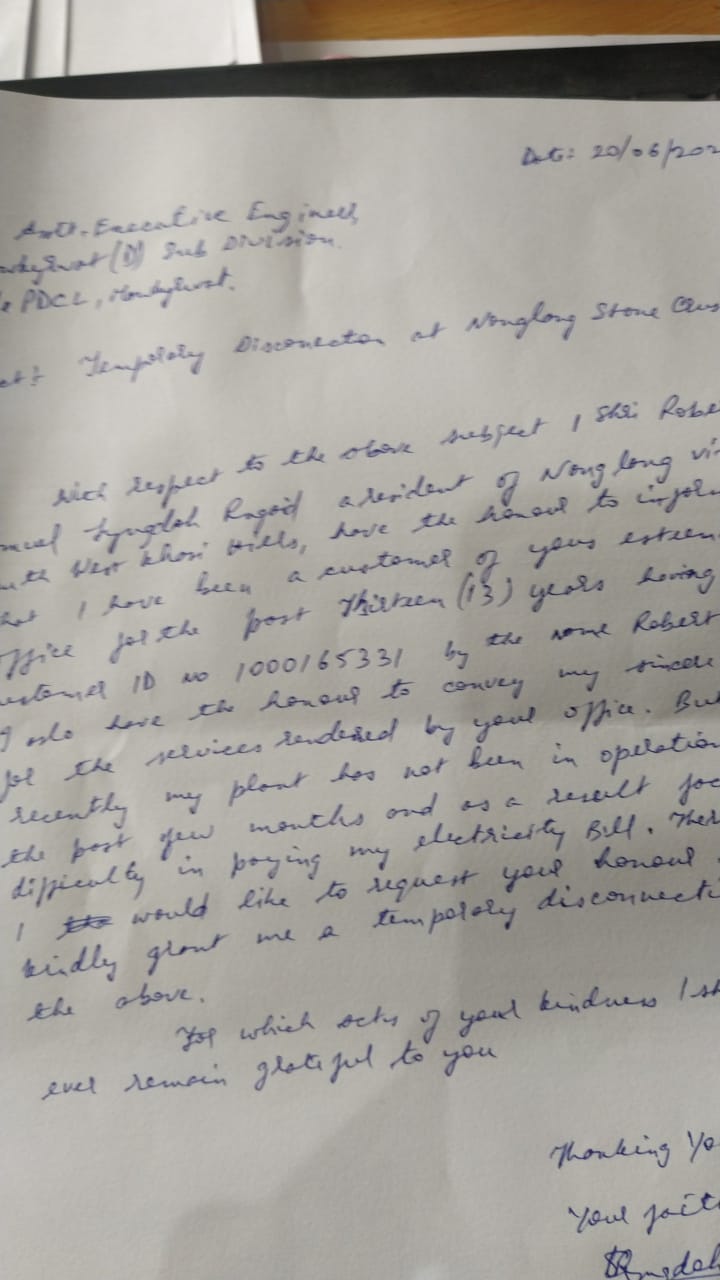 Date: 20/06/202
Asstt. Executive Engineer,
(D) Sub Division.
PDCL, Mawkyrwat.
ct: Temporary Disconection at Nonglang Stone Crus
With respect to the above subject I Shri Rober
muel Syngdoh a resident of Nonglang vi
uth West Khasi Hills, have the honour to inform
hat I have been a customer of your esteem
office for the past Thirteen (13) years having
ustomer ID no 1000165331 by the name Robert
I also have the honour to convey my sincere
for the services rendered by your office. But
recently my plant has not been in operation
the past few months and as a result fac
difficulty in paying my electricity Bill. Ther
I would like to request your honour
kindly grant me a temporary disconnecti
the above.
For which acts of your kindness I sh
ever remain grateful to you
Thanking Yo
Your fait